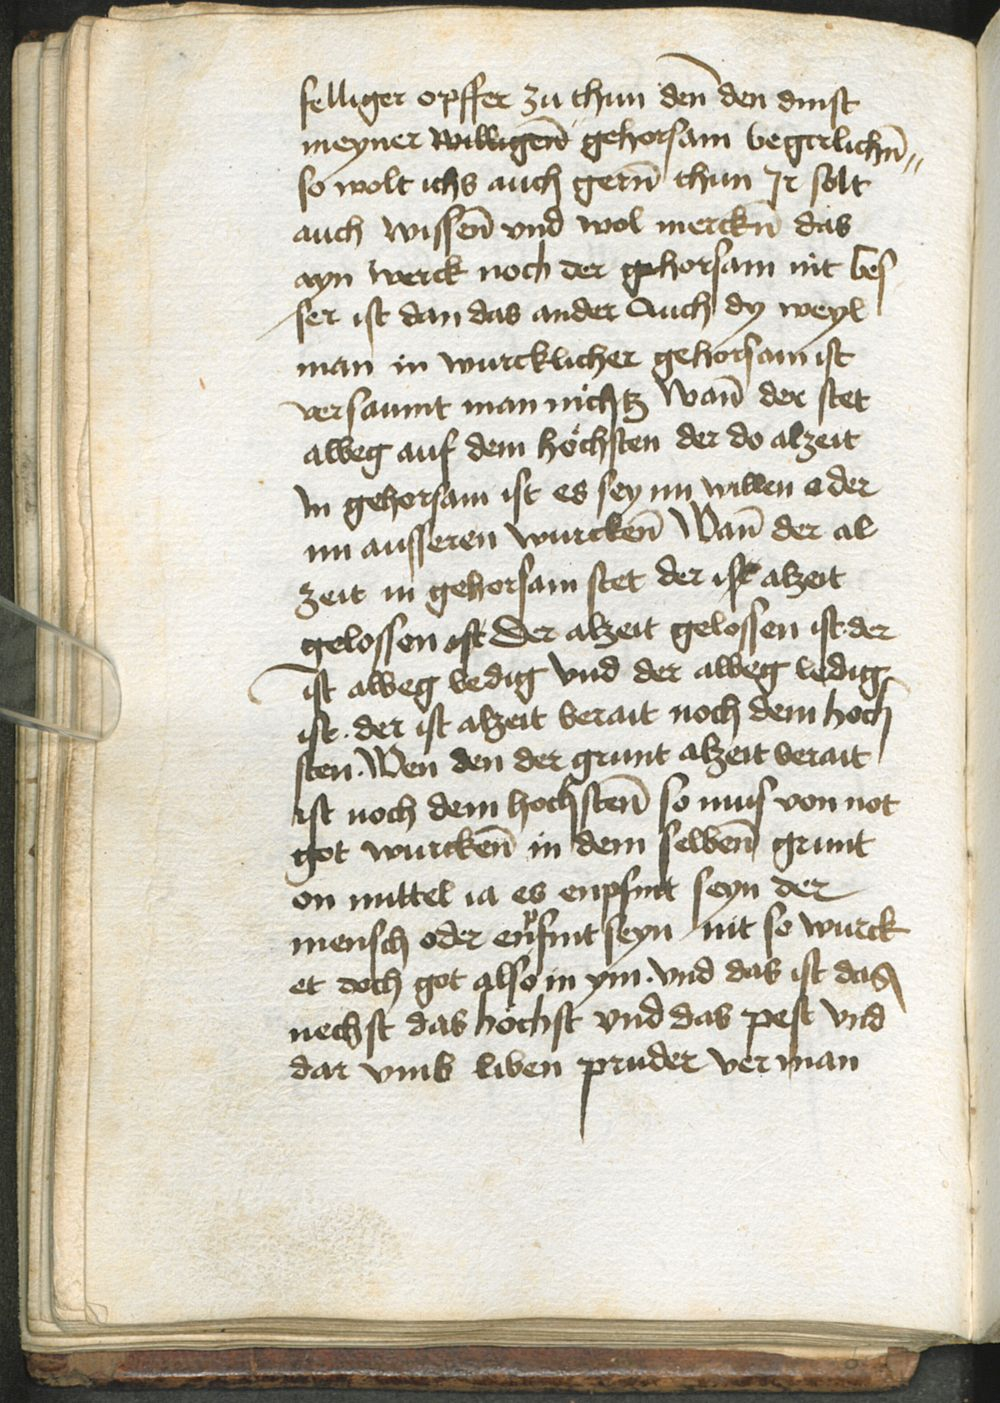 felliger opffer zu thun deñ den dinst
meyner willigeñ gehorsam begerlichñ
so wolt ichs auch gerñ thun Ir solt
auch wisseñ vnd wol merckñ das
ayn werck noch der gehorsam nit bes
ser ist dan das ander Auch dy weyl
man in wurcklicher gehorsam ist
versaumt man nichtz Wañ der stet
alweg auf dem höchsten der do alzeit
In gehorsam ist es sey im willen oder
im ausseren wurckeñ Wañ der al
zeit in gehorsam stet der ist alzeit
gelossen ist Der alzeit gelossen ist der
ist alweg ledig Vnd der alweg ledig
ist . der ist alzeit berait noch dem hoch
sten . Wen den der grunt alzeit berait
ist noch dem hochsteñ so mus von not
got wurckeñ in dem selbeñ grunt
on mittel ia es enpfint seyn der
mensch oder enpfint seyn nit so wurck
et doch got also in ym . vnd das ist das
nechst das höchst vnd das pest vnd
dar vmb liben pruder verman